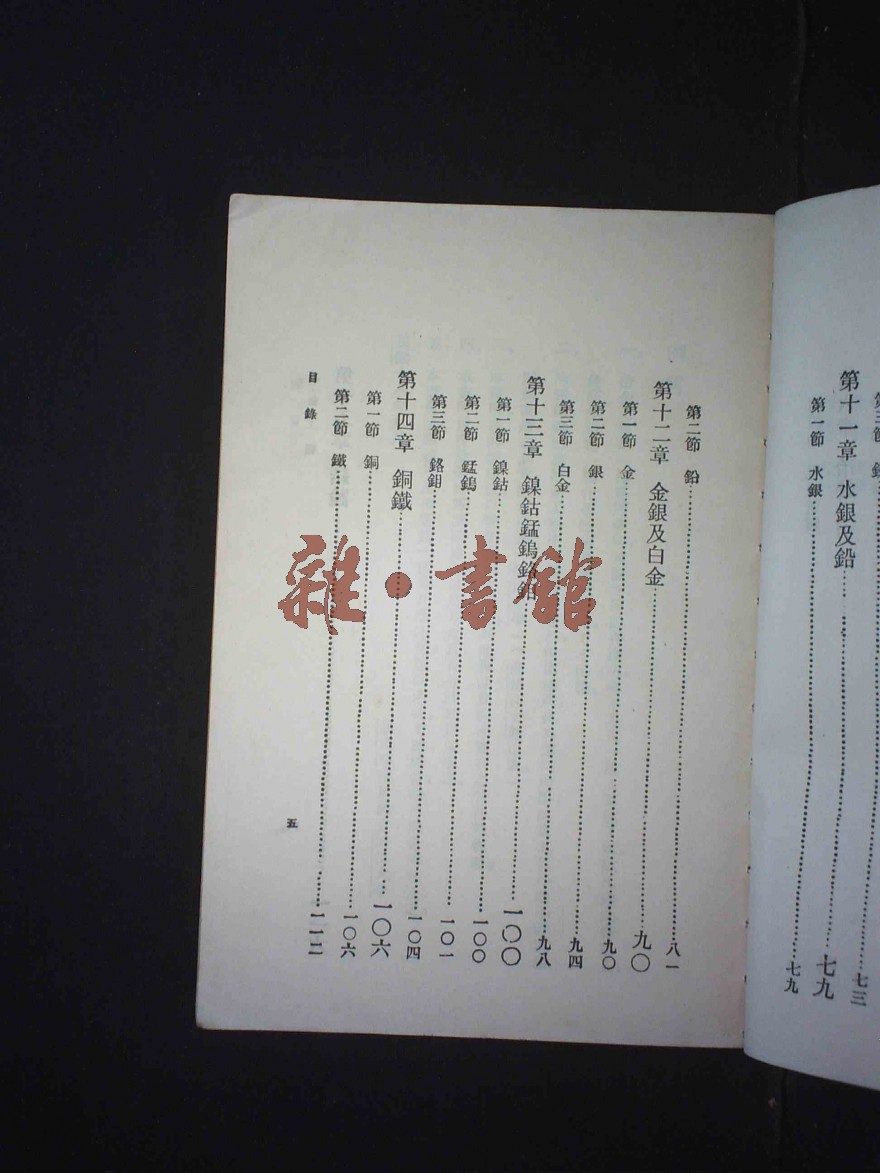 第十一章 水銀及鉛 七九
第一節 水銀 七九
第二節 鉛 八一
第十二章 金銀及白金 九〇
第一節 金 九〇
第二節 銀 九四
第三節 白金 九八
第十三章 鎳鈷錳鎢鉻鉬 一〇〇
第一節 鎳鈷 一〇〇
第二節 錳鎢 一〇一
第三節 鉻鉬 一〇四
第十四章 銅鐵 一〇六
第一節 銅 一〇六
第二節 鐵 一一二
目錄
五
雜·書館